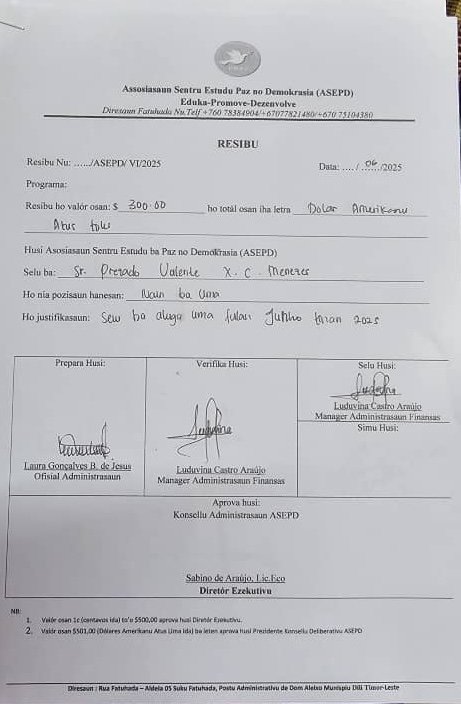 Assosiasaun Sentru Estudu Paz no Demokrasia (ASEPD)
Eduka-Promove-Dezenvolve
Diresaun Fatuhada Nu.Telf +760 78384904/+67077821480/+670 75104380
RESIBU
Resibu Nu: ....../ASEPD/ VI/2025
Data: .... / .06.. /2025
Programa:
Resibu ho valór osan: $ 300.00 ho totál osan iha letra Dolar Amerikanu
Atus tolu
Husi Asosiasaun Sentru Estudu ba Paz no Demokrasia (ASEPD)
Selu ba: Sr. Prezado Valente X. C. Menezes
Ho nia pozisaun hanesan: Nain ba Uma
Ho justifikasaun: Sew ba aluga uma fulan Junho tinan 2025
Prepara Husi:
Laura Gonçalves B. de Jesus
Ofisial Administrasaun
Verifika Husi:
Luduvina Castro Araújo
Manager Administrasaun Finansas
Selu Husi:
Luduvina Castro Araújo
Manager Administrasaun Finansas
Simu Husi:
Aprova husi:
Konsellu Administrasaun ASEPD
Sabino de Araújo, Lic.Eco
Diretór Ezekutivu
NB:
1. Valór osan 1c (centavos ida) to'o $500,00 aprova husi Diretór Ezekutivu.
2. Valór osan $501,00 (Dólares Amerikanu Atus Lima Ida) ba leten aprova husi Prezidente Konsellu Deliberativu ASEPD
Diresaun : Rua Fatuhada – Aldeia 05 Suku Fatuhada, Postu Administrativu de Dom Aleixo Munisipiu Dili Timor-Leste